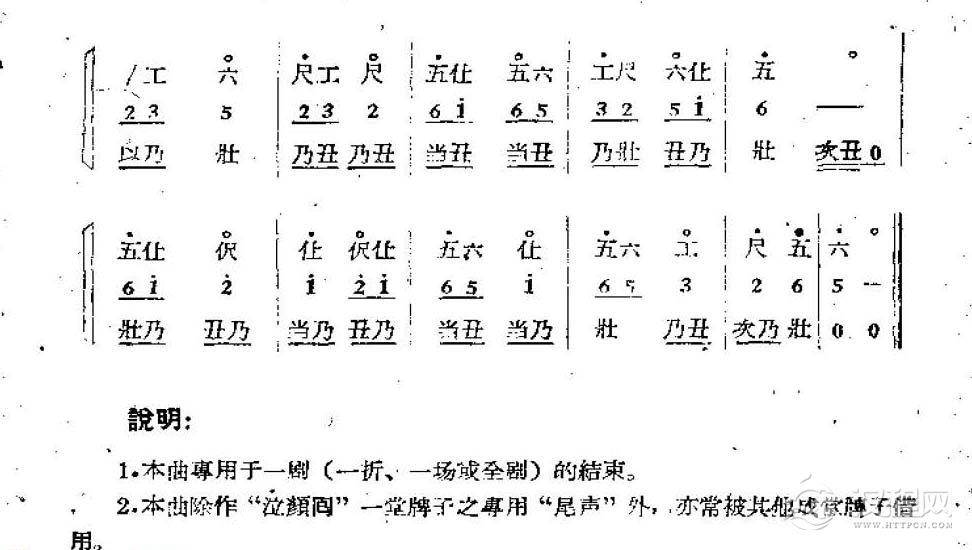 工 六 尺工 尺 五仩 五六 工尺 六仩 五
2 3 5 2 3 2 6 i 6 5 3 2 5 i 6 —
以乃 壯 乃丑 乃丑 当丑 当丑 乃壯 丑乃 壯 次丑 0
五仩 伬 仩 伬仩 五六 仩 五六 工 尺 五 六
6 i 2̇ i 2̇ i 6 5 i 6 5 3 2 6 5 —
壯乃 丑乃 当乃 丑乃 当丑 当乃 壯 乃丑 次乃 壯 0 0
說明:
1.本曲專用于一剧（一折、一场或全剧）的結束。
2.本曲除作“泣顏回”一堂牌子之專用“尾声”外，亦常被其他成堂牌子借
用。
HTTPCN.COM